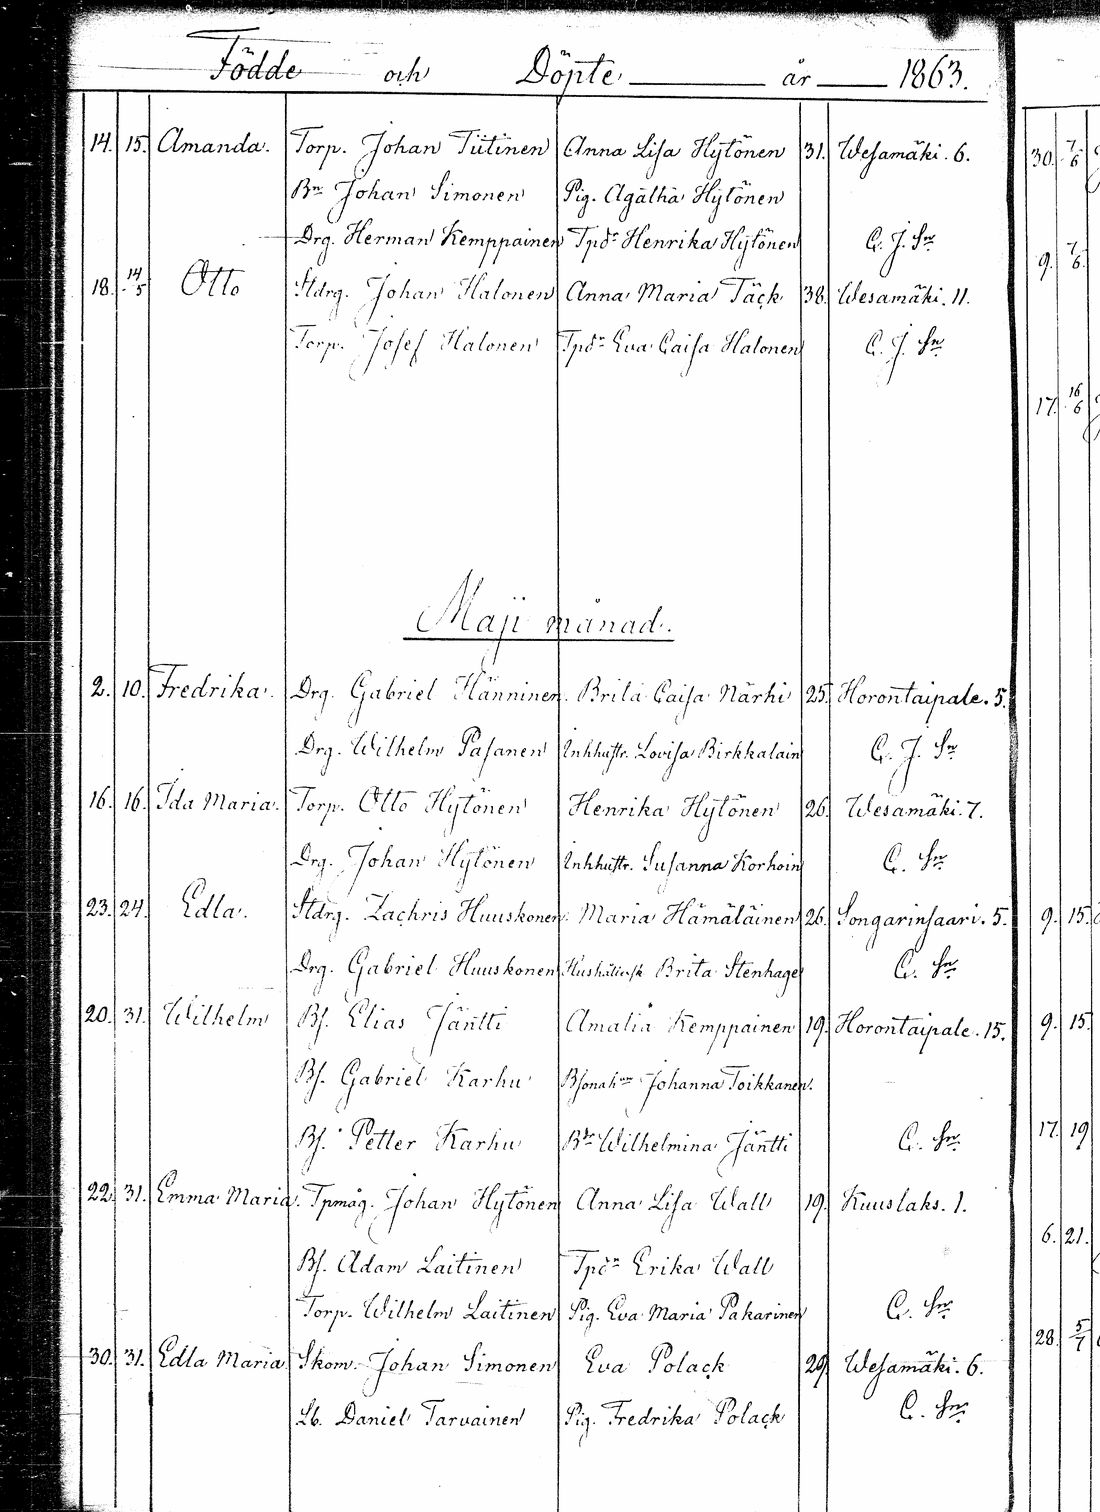 Födde och Döpte år 1863.
14. 15. Amanda. Torp. Johan Tiitinen Anna Lisa Hytönen 31. Wesamäki. 6.
Bn Johan Simonen Pig. Agatha Hytönen
Drg. Herman Kemppainen Tpdr Henrika Hytönen C. J. Sn
18. 14/5 Otto Stdrg. Johan Halonen Anna Maria Täck 38. Wesamäki. 11.
Torp. Josef Halonen Tpdr Eva Caisa Halonen C. J. Sn
Maji månad.
2. 10. Fredrika. Drg. Gabriel Hänninen. Brita Caisa Närhi 25. Horontaipale. 5.
Drg. Wilhelm Pasanen Inhhustr. Lovisa Birkkalain C. J. Sn
16. 16. Ida Maria. Torp. Otto Hytönen Henrika Hytönen 26. Wesamäki. 7.
Drg. Johan Hytönen Inhhustr. Susanna Korhoin C. Sn
23. 24. Edla. Stdrg. Zachris Huuskonen. Maria Hämäläinen 26. Songarinsaari. 5.
Drg. Gabriel Huuskonen Brita Stenhage C. Sn
20. 31. Wilhelm Bs. Elias Jäntti Amalia Kemppainen 19. Horontaipale. 15.
Bs. Gabriel Karhu Johanna Toikkanen.
Bs. Petter Karhu Bdr Wilhelmina Jäntti C. Sn
22. 31. Emma Maria. Tpmåg. Johan Hytönen Anna Lisa Wall 19. Kuuslaks. 1.
Bs. Adam Laitinen Tpdr Erika Wall
Torp. Wilhelm Laitinen Pig. Eva Maria Pakarinen C. Sn
30. 31. Edla Maria Skom. Johan Simonen Eva Polack 29. Wesamäki. 6.
Lb. Daniel Tarvainen Pig. Fredrika Polack C. Sn
30. 7/6
9. 7/6.
17. 16/6
9. 15.
9. 15.
17. 19
6. 21.
28. 5/7